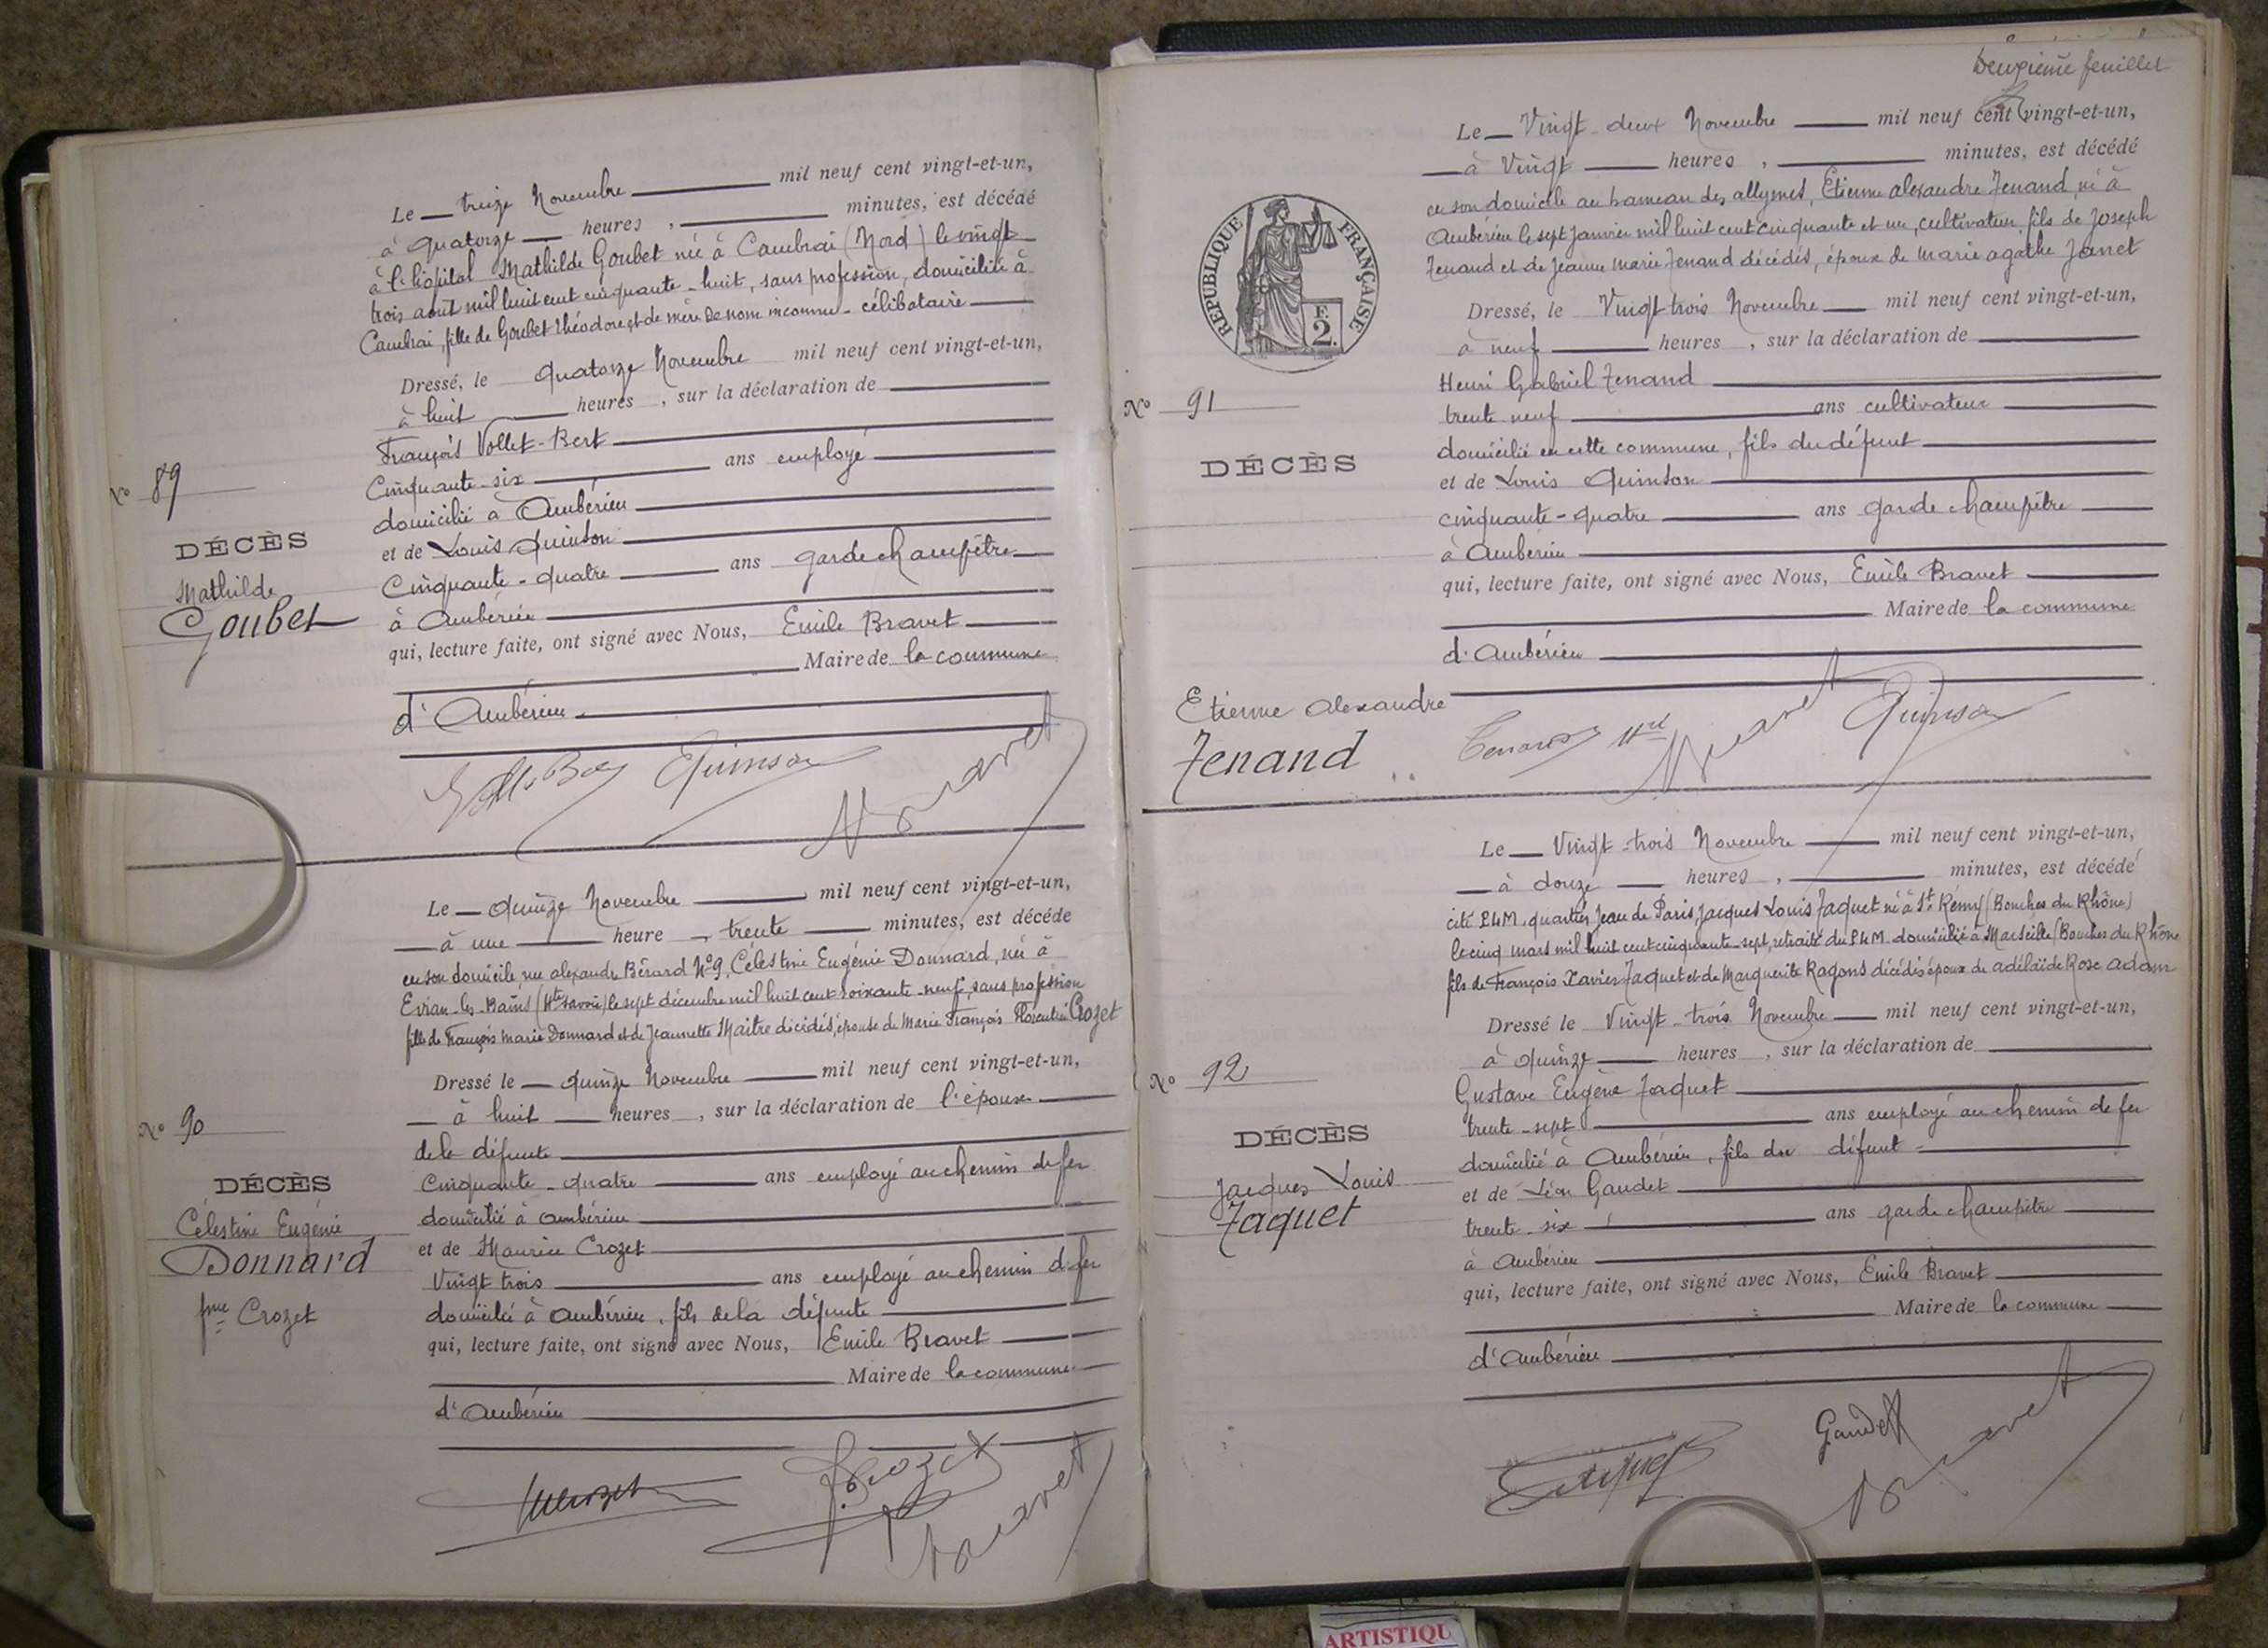 Le treize Novembre mil neuf cent vingt-et-un,
à quatorze heures , minutes, est décédé
à l'hôpital Mathilde Goubet née à Cambrai (Nord) le vingt
trois août mil huit cent cinquante-huit, sans profession, domiciliée à
Cambrai, fille de Goubet Théodore et de mère de nom inconnu - célibataire
Dressé, le quatorze Novembre mil neuf cent vingt-et-un,
à huit heures , sur la déclaration de
François Vollet-Bert
Cinquante-six ans employé
domicilié à Ambérieu
et de Louis Quinson
Cinquante-quatre ans garde champêtre
à Ambérieu
qui, lecture faite, ont signé avec Nous, Emile Bravet
Maire de la commune
d'Ambérieu
No 89
DÉCÈS
Mathilde
Goubet
Quinson
Bravet
Le quinze Novembre mil neuf cent vingt-et-un,
à une heure , trente minutes, est décédé
en son domicile, rue alexandre Bérard No 9, Célestine Eugénie Donnard, née à
Evian-les-Bains (Hte savoie) le sept décembre mil huit cent soixante-neuf, sans profession
fille de François marie Donnard et de Jeannette Maitre décédés, épouse de Marie François Florentin Crozet
Dressé le quinze Novembre mil neuf cent vingt-et-un,
à huit heures , sur la déclaration de l'époux
de la défunte
Cinquante-quatre ans employé au chemin de fer
domicilié à ambérieu
et de Maurice Crozet
Vingt trois ans employé au chemin de fer
domicilié à ambérieu, fils de la défunte
qui, lecture faite, ont signé avec Nous, Emile Bravet
Maire de la commune
d'ambérieu
No 90
DÉCÈS
Célestine Eugénie
Donnard
fme Crozet
Crozet
Bravet
Deuxième feuillet
RÉPUBLIQUE FRANÇAISE
F. 2.
Le Vingt-deux Novembre mil neuf cent vingt-et-un,
à Vingt heures , minutes, est décédé
en son domicile au hameau des allymes, Etienne alexandre Jenand, né à
Ambérieu le sept janvier mil huit cent cinquante et un, cultivateur, fils de Joseph
Jenand et de Jeanne marie Jenand décédés, époux de marie agathe Janet
Dressé, le Vingt trois Novembre mil neuf cent vingt-et-un,
à neuf heures , sur la déclaration de
Henri Gabriel Jenand
trente neuf ans cultivateur
domicilié en cette commune, fils du défunt
et de Louis Quinson
cinquante-quatre ans garde champêtre
à Ambérieu
qui, lecture faite, ont signé avec Nous, Emile Bravet
Maire de la commune
d'Ambérieu
No 91
DÉCÈS
Etienne alexandre
Jenand
Bravet
Quinson
Le Vingt-trois Novembre mil neuf cent vingt-et-un,
à douze heures , minutes, est décédé
cité P.L.M. quartier Jean de Paris, Jacques Louis Jaquet né à St Rémy (Bouches du Rhône)
le cinq mars mil huit cent cinquante-sept, retraité du P.L.M. domicilié à Marseille (Bouches du Rhône
fils de François Xavier Jaquet et de Marguerite Ragons décédés époux de adélaïde Rose adam
Dressé le Vingt-trois Novembre mil neuf cent vingt-et-un,
à quinze heures , sur la déclaration de
Gustave Eugène Jaquet
trente-sept ans employé au chemin de fer
domicilié à Ambérieu, fils du défunt
et de Léon Gaudet
trente-six ans garde champêtre
à Ambérieu
qui, lecture faite, ont signé avec Nous, Emile Bravet
Maire de la commune
d'Ambérieu
No 92
DÉCÈS
Jacques Louis
Jaquet
Gaudet
Bravet
ARTISTIQU